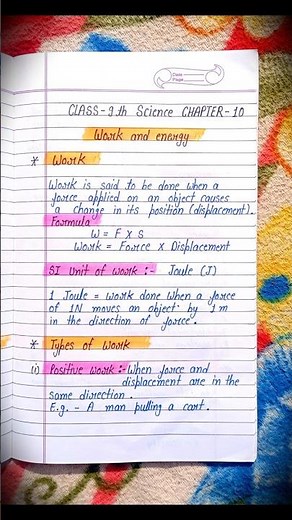 Date
Page
CLASS-9th Science CHAPTER-10
Work and energy
* Work
Work is said to be done when a
force applied on an object causes
a change in its position (displacement).
Formula
W = F X S
Work = Force X Displacement
SI Unit of work :- Joule (J)
1 Joule = work done when a force
of 1N moves an object by 1m
in the direction of force.
* Types of Work
(i) Positive work :- When force and
displacement are in the
same direction.
E.g. - A man pulling a cart.